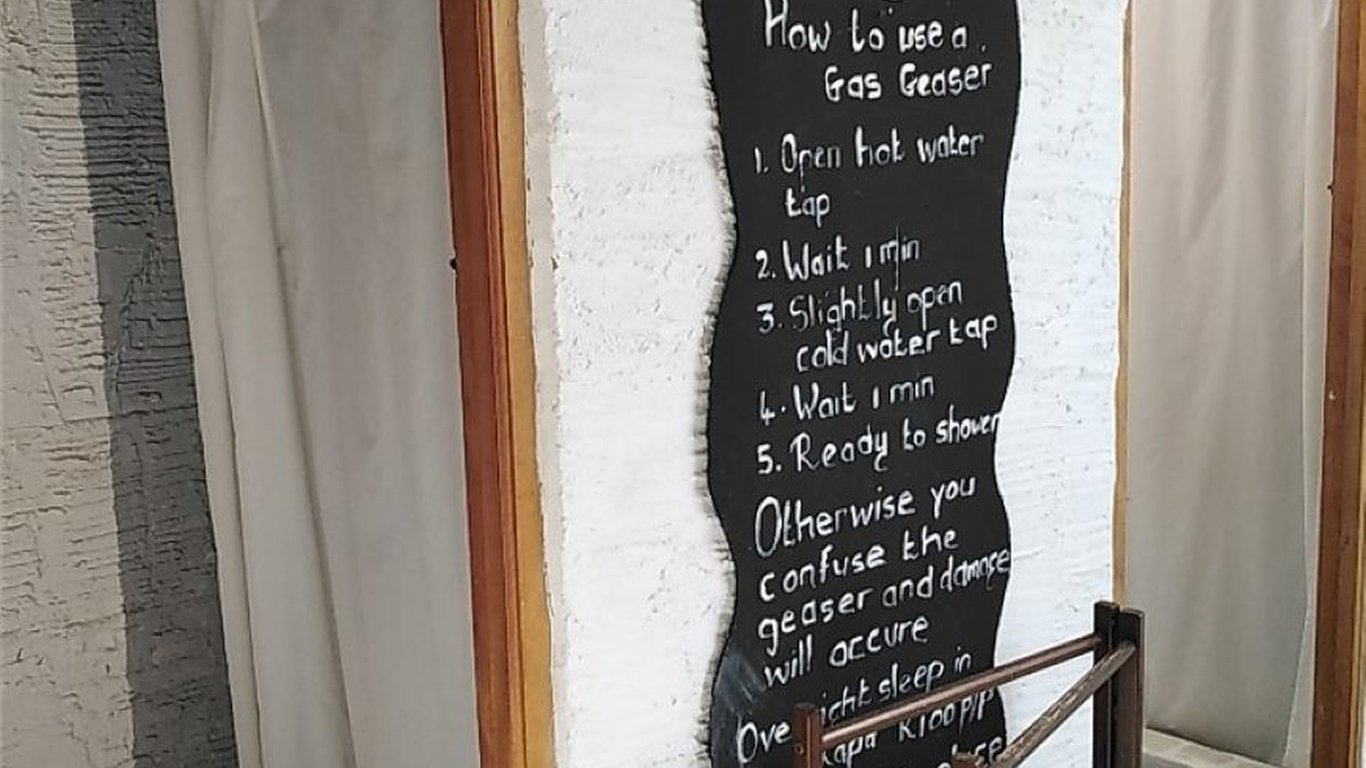 How to use a
Gas Geaser
1. Open hot water
tap
2. Wait 1 min
3. Slightly open
cold water tap
4. Wait 1 min
5. Ready to shower
Otherwise you
confuse the
geaser and damage
will occure
sleep in
R100 p/p